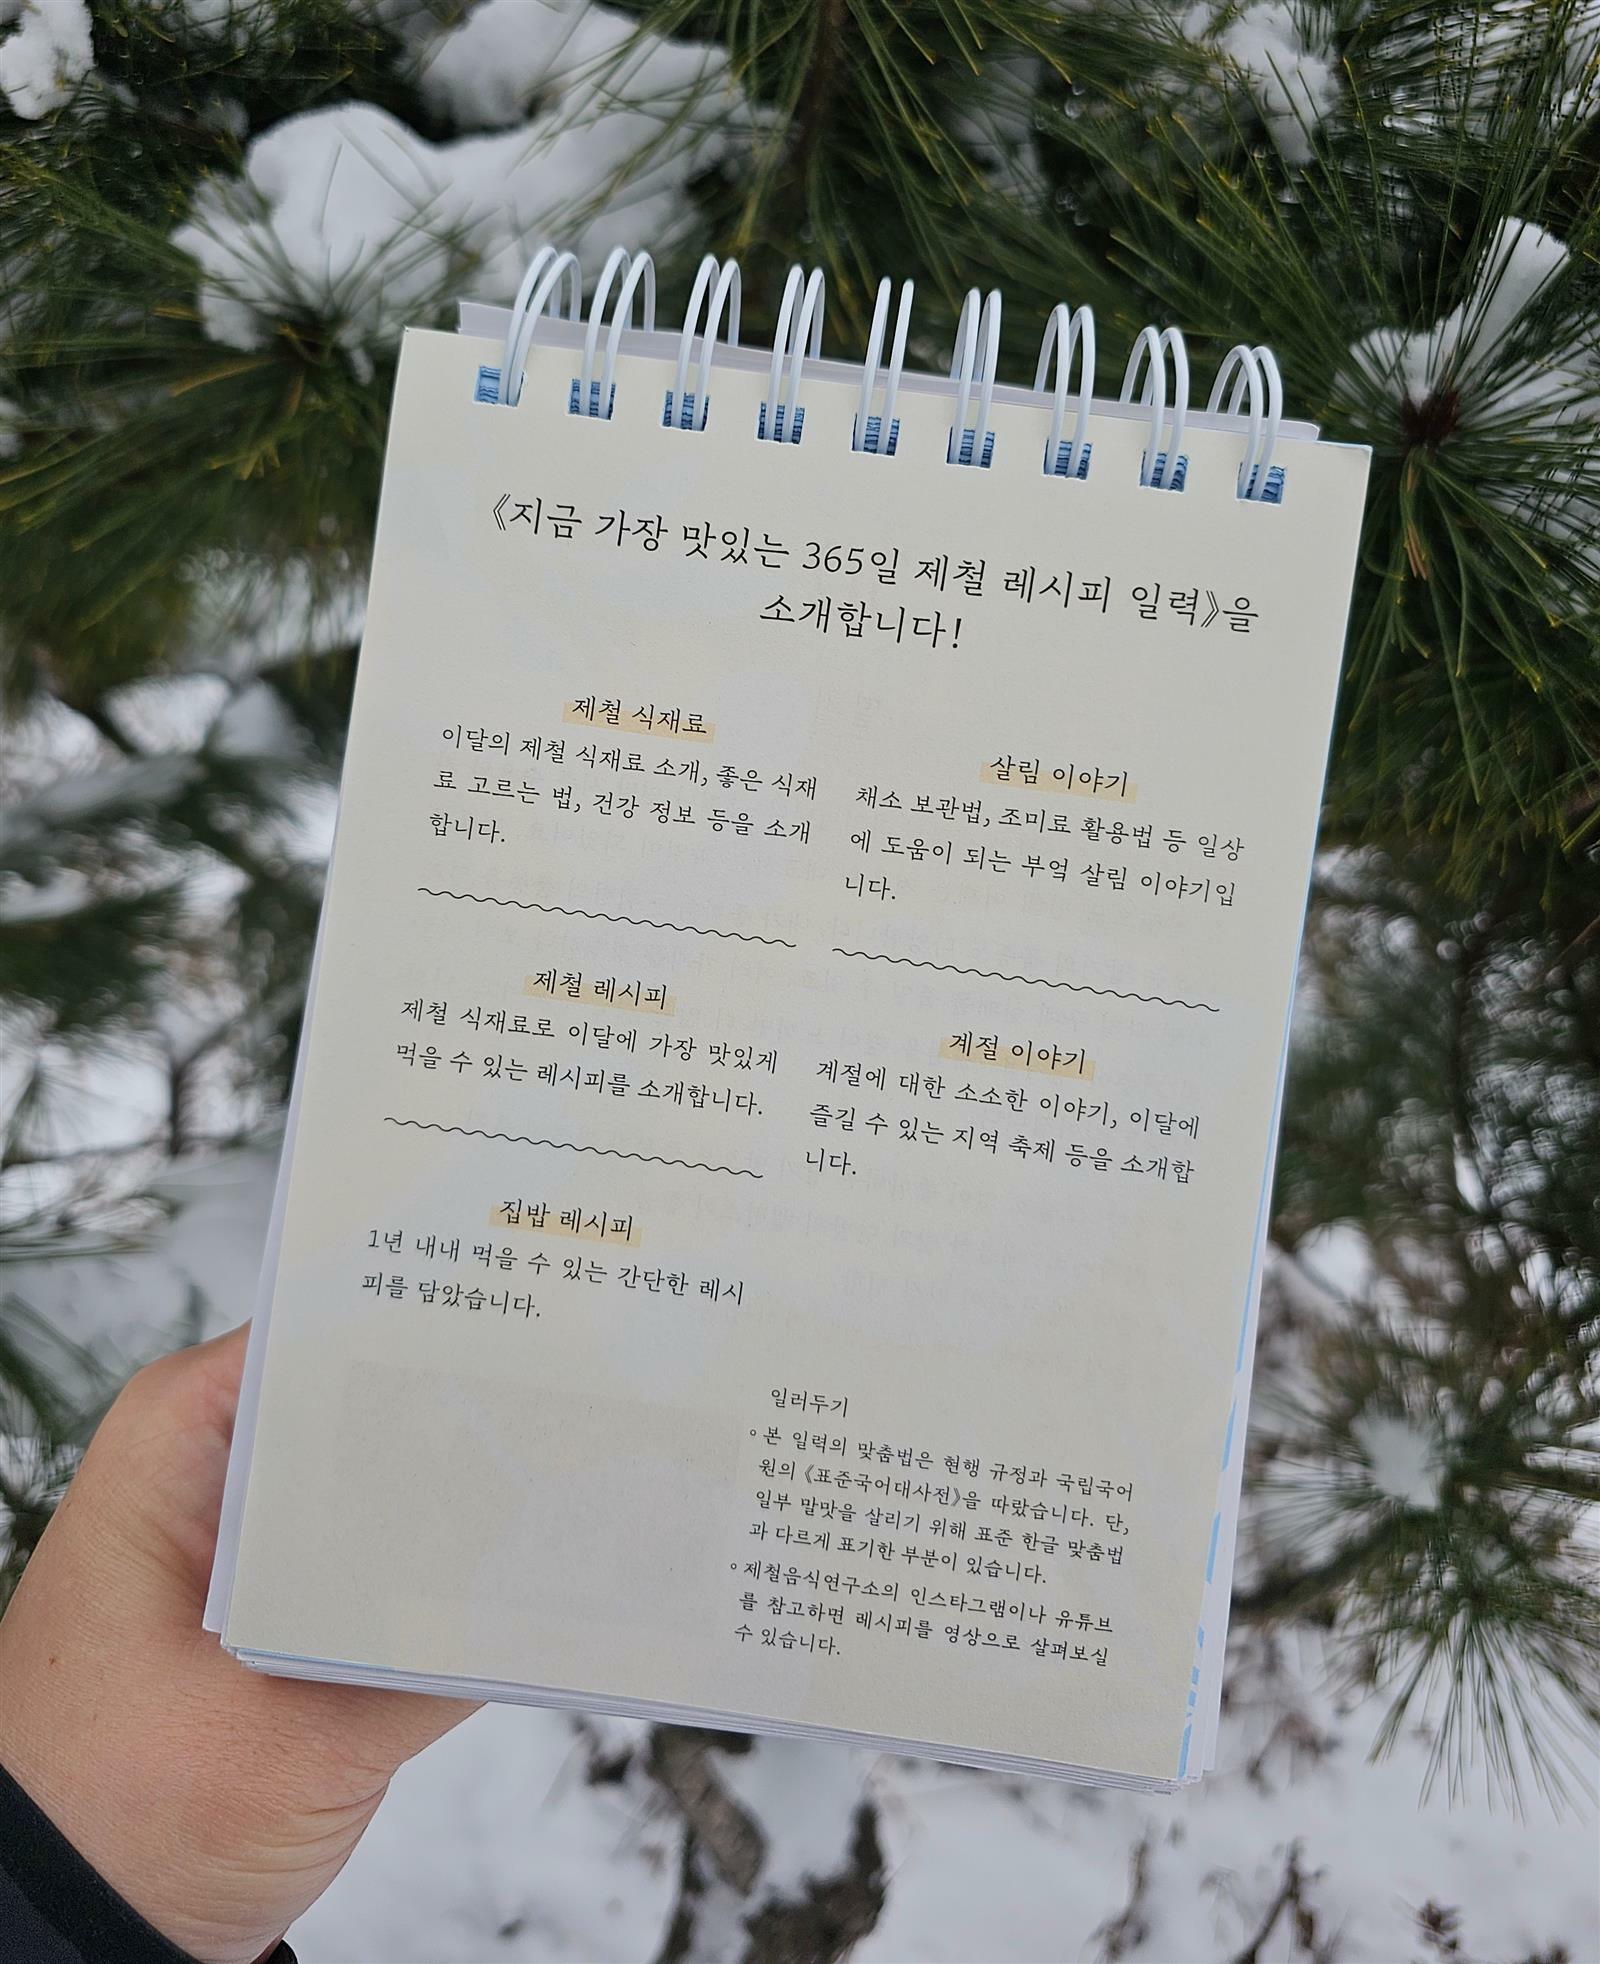 《지금 가장 맛있는 365일 제철 레시피 일력》을
소개합니다!
제철 식재료
이달의 제철 식재료 소개, 좋은 식재
료 고르는 법, 건강 정보 등을 소개
합니다.
제철 레시피
제철 식재료로 이달에 가장 맛있게
먹을 수 있는 레시피를 소개합니다.
집밥 레시피
1년 내내 먹을 수 있는 간단한 레시
피를 담았습니다.
살림 이야기
채소 보관법, 조미료 활용법 등 일상
에 도움이 되는 부엌 살림 이야기입
니다.
계절 이야기
계절에 대한 소소한 이야기, 이달에
즐길 수 있는 지역 축제 등을 소개합
니다.
일러두기
◦ 본 일력의 맞춤법은 현행 규정과 국립국어
원의 《표준국어대사전》을 따랐습니다. 단,
일부 말맛을 살리기 위해 표준 한글 맞춤법
과 다르게 표기한 부분이 있습니다.
◦ 제철음식연구소의 인스타그램이나 유튜브
를 참고하면 레시피를 영상으로 살펴보실
수 있습니다.